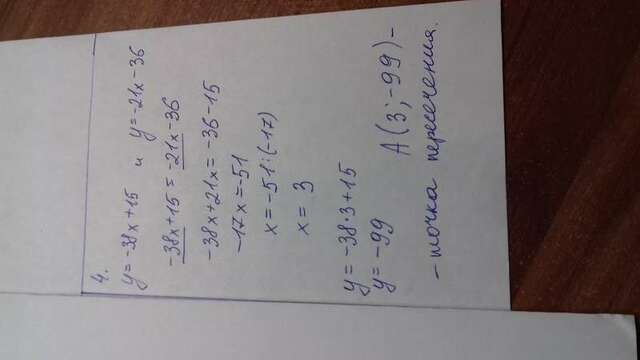 4.
y=-38x+15 и y=-21x-36
-38x+15=-21x-36
-38x+21x=-36-15
-17x=-51
x=-51:(-17)
x=3
y=-38·3+15
y=-99
A(3;-99)-
-точка пересечения.